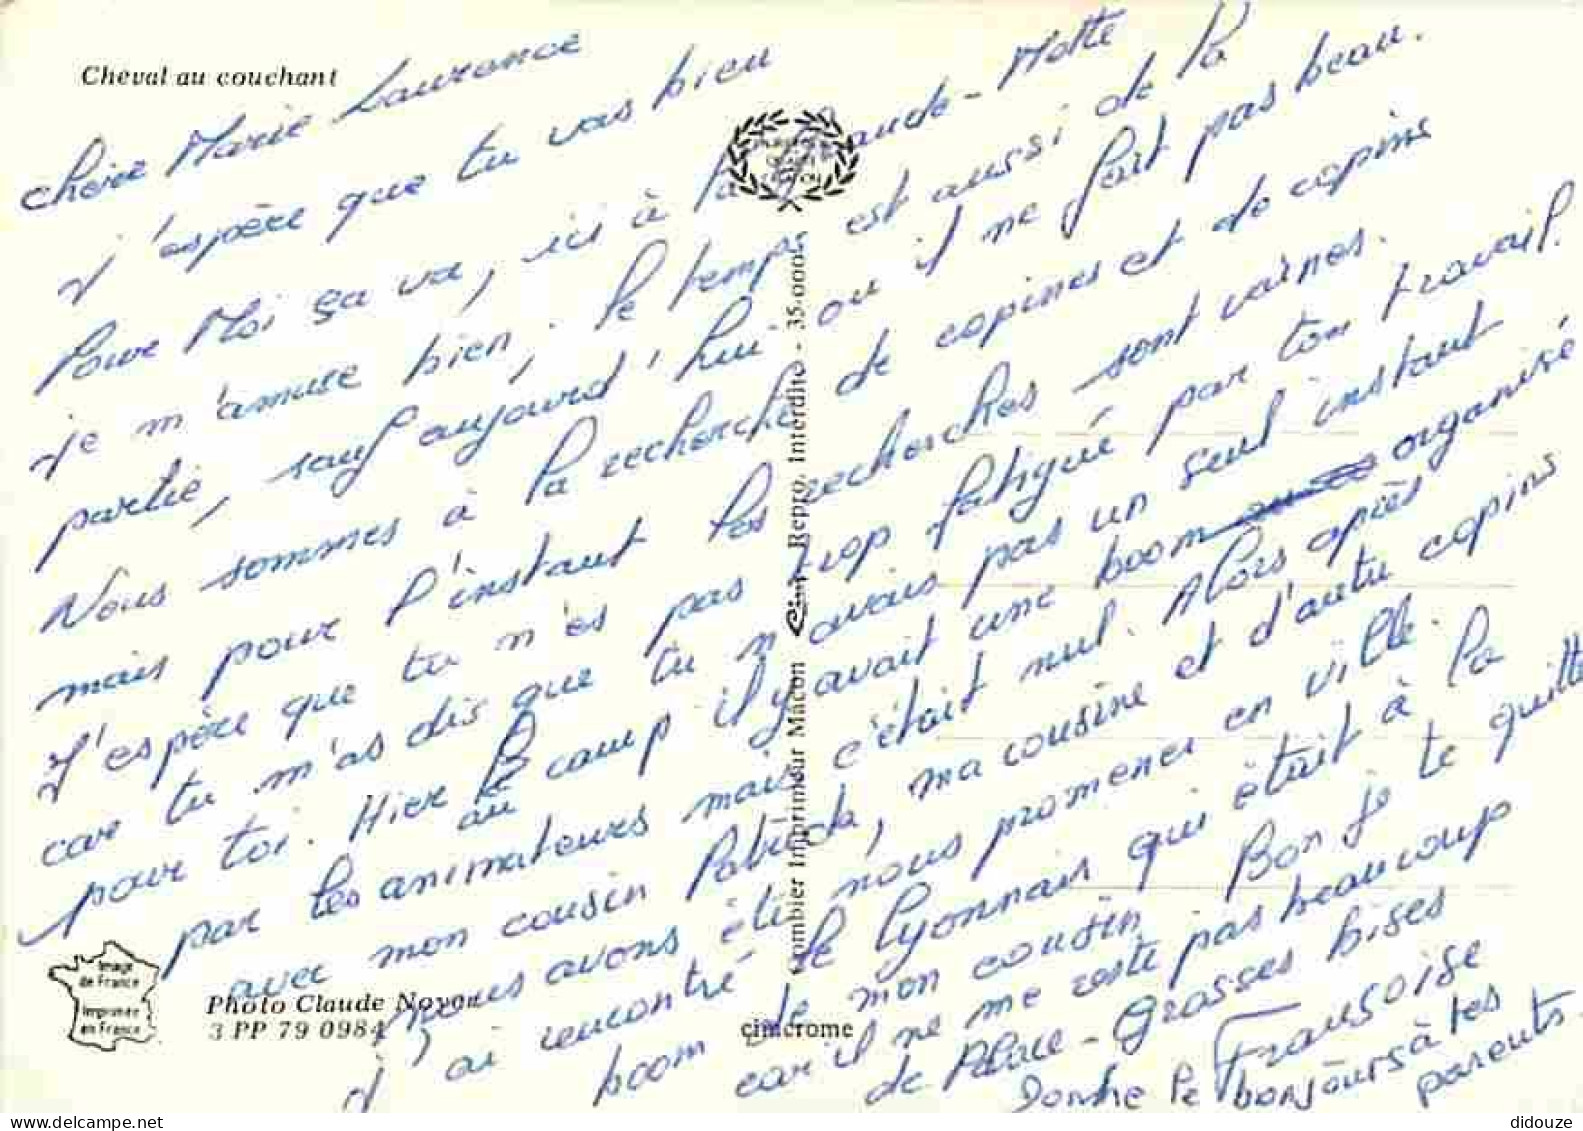 Cheval au couchant
chère Marie Laurance
J'espère que tu vas bien
Pour Moi ça va, ici à la Grande-Motte
je m'amuse bien, le temps est aussi de la
partie, sauf aujourd'hui ou il ne fait pas beau.
Nous sommes à la recherche de copines et de copins
mais pour l'instant les recherches sont vaines.
J'espère que tu n'es pas trop fatigué par ton travail.
car tu m'as dis que tu n'avais pas un seul instant
pour toi. Hier au camp il y avait une boom organisé
par les animateurs mais c'était nul. Alors après
avec mon cousin Patrick, ma cousine et d'autre copins
nous avons été nous promener en ville.
J'ai rencontré le lyonnais qui était à la
boom de mon cousin. Bon je te quitte
car il ne me reste pas beaucoup
de place - Grosses bises
Françoise
Donne le bonjours à tes
parents.
35.000
Combier Imprimeur Macon Cim Repro. Interdite -
Image
de France
Imprimée
en France
Photo Claude Noyon
3 PP 79 0984
cimcrome
didouze